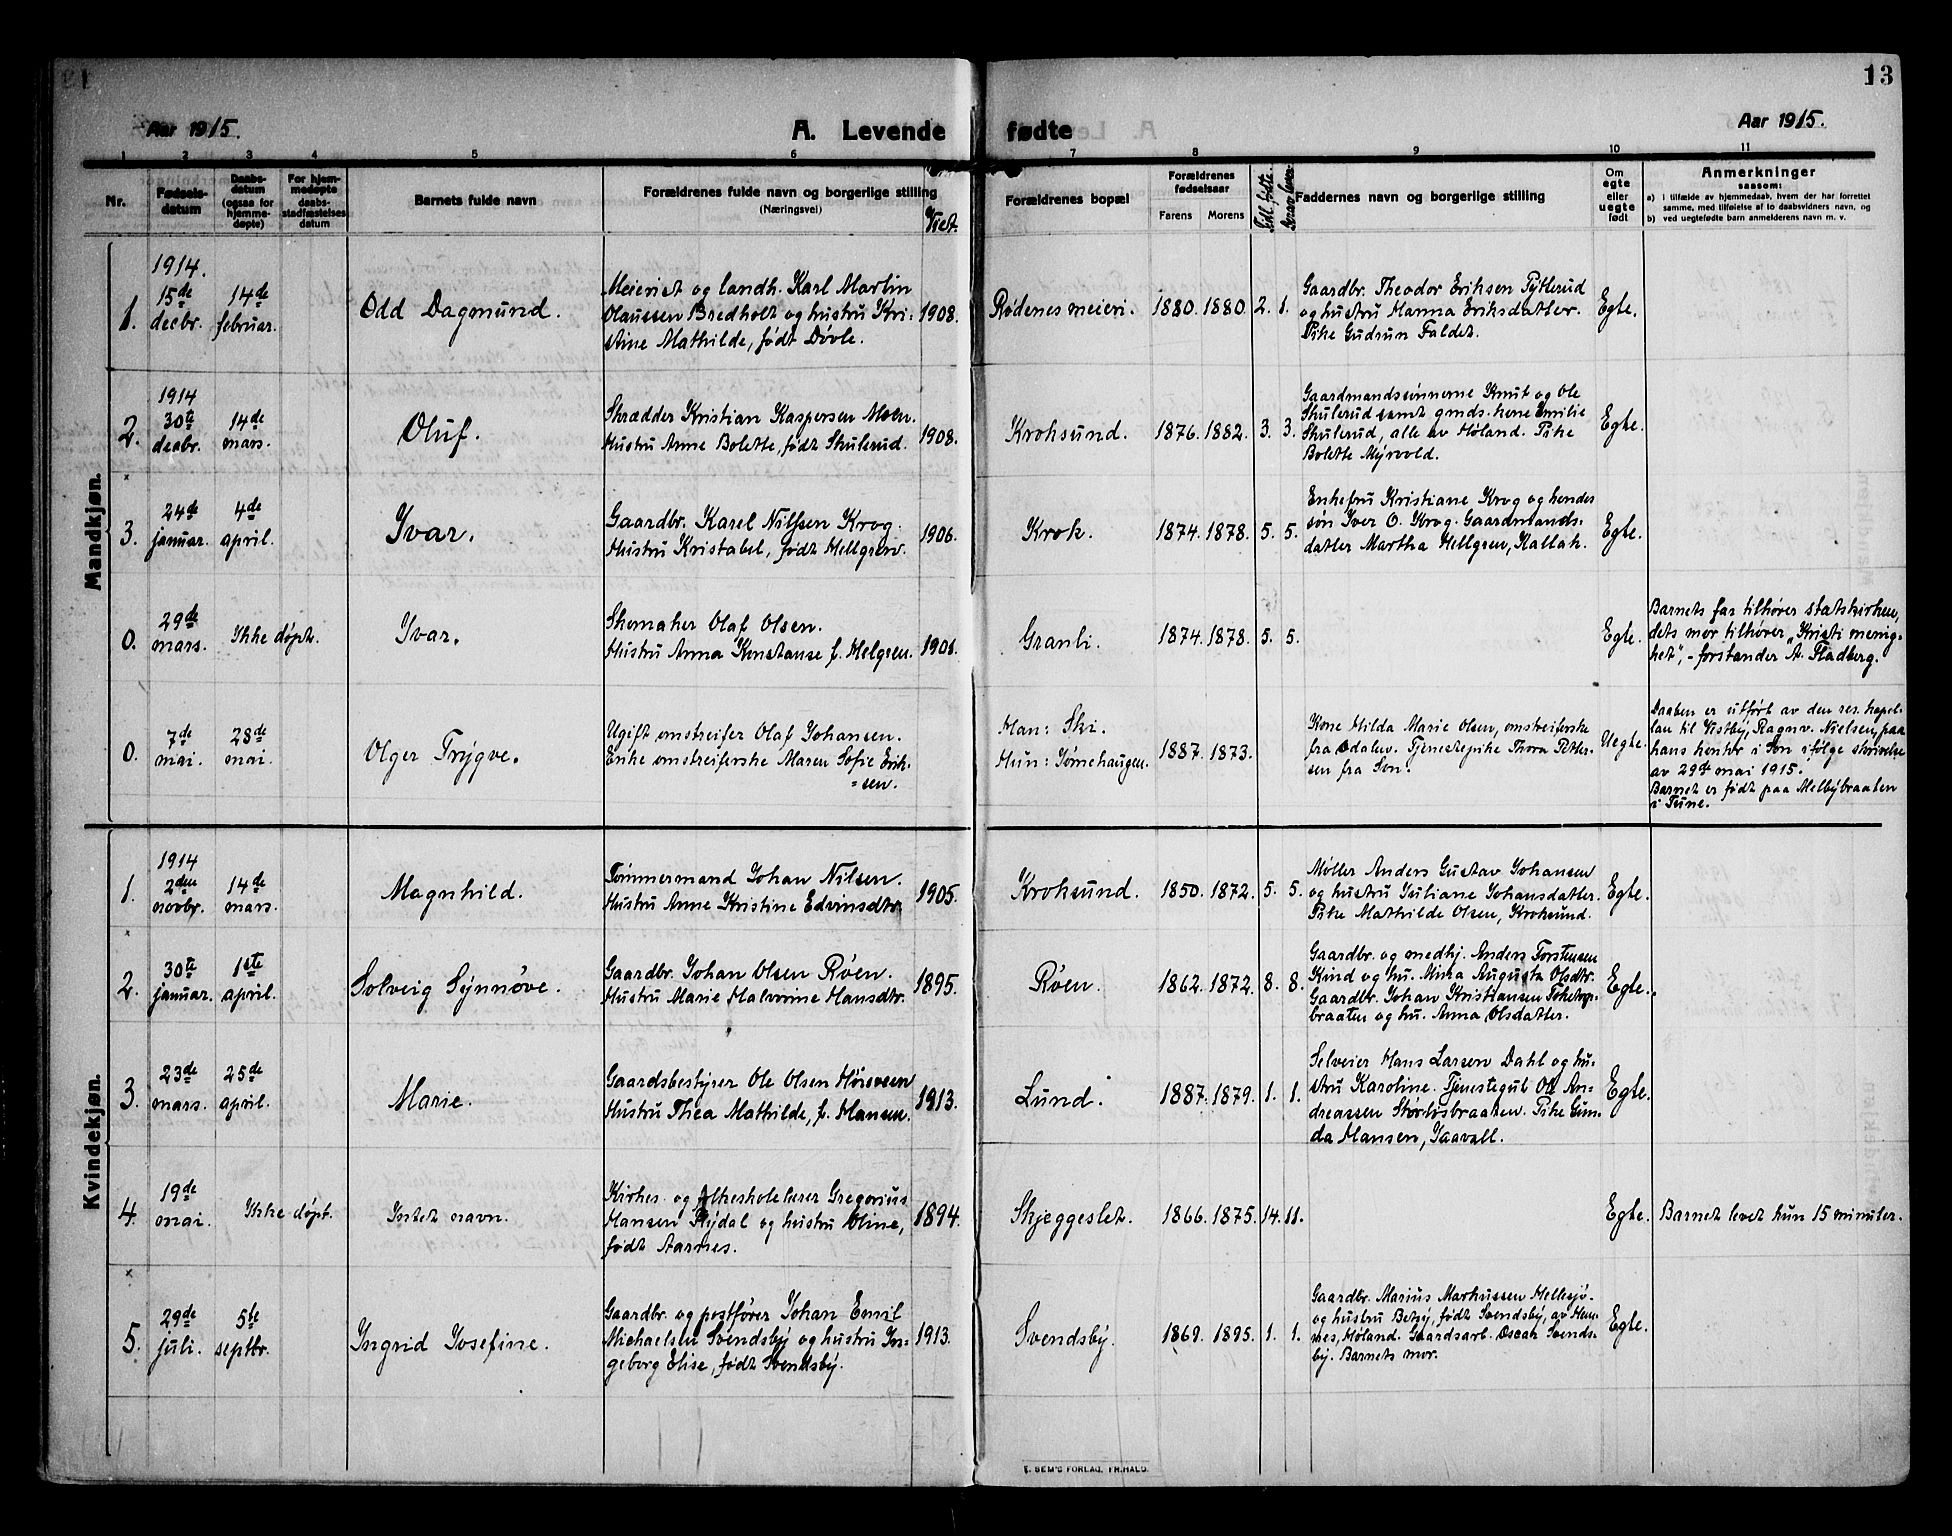 13
Aar 1915.
A. Levende fødte
Aar 1915.
1 2 3 4 5 6 7 8 9 10 11
Nr.
Fødsels-
datum
Daabs-
datum
(ogsaa for
hjemme-
døpte)
For hjem-
medøpte
daabs-
stadfæstelses
datum
Barnets fulde navn
Forældrenes fulde navn og borgerlige stilling
(Næringsvei)
Viet.
Forældrenes bopæl
Forældrenes
fødselsaar
Farens Morens
Faddernes navn og borgerlige stilling
Om
egte
eller
uegte
født
Anmerkninger
saasom:
a) i tilfælde av hjemmedaab, hvem der har forrettet
samme, med tilføielse av to daabsvidners navn, og
b) ved uegtefødte barn anmelderens navn m. v.
Mandkjøn.
1.
1914.
15de
decbr.
14de
februar.
Odd Dagmund.
Meieriet og landh. Karl Martin
Olaussen Bredholt og hustru Kri-
stine Mathilde, født Døvle.
1908.
Rødenes meieri.
1880. 1880. 2. 1.
Gaardbr. Theodor Eriksen
og hustru Hanna Eriksdatter.
Pike Gudrun Faldet.
Egte.
2.
1914
30te
decbr.
14de
mars.
Oluf.
Skrædder Kristian Kaspersen Moen.
Hustru Anne Bolette, født Skulerud.
1908.
Kroksund.
1876. 1882. 3. 3.
Gaardmandssønnerne Knut og Ole
Skulerud samt gmds. kone Emilie
Skulerud, alle av Høland. Pike
Bolette Myrvold.
Egte.
3.
24de
januar.
4de
april.
Ivar.
Gaardbr. Karel Nilsen Krog.
Hustru Kristabel, født Hellgren.
1906.
Krok.
1874. 1878. 5. 5.
Enkefru Kristiane Krog og hendes
søn Iver O. Krog. Gaardmands-
datter Martha Hellgren, Kallak.
Egte.
0.
29de
mars.
Ikke døpt.
Ivar.
Skomaker Olaf Olsen.
Hustru Anna Konstanse f. Helgren.
1901.
Granli.
1874. 1878. 5. 5.
Egte.
Barnets far tilhører statskirken,
dets mor tilhører „Kristi menig-
het”, - forstander A. Fladberg.
0.
7de
mai.
28de
mai.
Olger Trygve.
Ugift omstreifer Olaf Johansen.
Enke omstreiferske Maren Sofie Erik-
=sen.
Man: Ski.
Hun: Tømehaugen.
1887. 1873.
Kone Hilda Marie Olsen, omstreiferske
fra Odalen. Tjenestepike Thora Petter-
sen fra Son.
Uegte.
Daaben er utført av den res. kapel-
lan til Vestby, Ragnv. Nielsen, paa
hans kontor i Son ifølge skrivelse
av 29de mai 1915.
Barnet er født paa Melbybraaten
i Tune.
Kvindekjøn.
1.
1914
2den
novbr.
14de
mars.
Magnhild.
Tømmermand Johan Nilsen.
Hustru Anne Kristine Edvinsdtr.
1905.
Kroksund.
1850. 1872. 5. 5.
Møller Anders Gustav Johansen
og hustru Juliane Johansdatter.
Pike Mathilde Olsen, Kroksund.
Egte.
2.
30te
januar.
1ste
april.
Solveig Synnøve.
Gaardbr. Johan Olsen Røen.
Hustru Marie Halvorine Hansdtr.
1895.
Røen.
1862. 1872. 8. 8.
Gaardbr. og medhj. Anders Torstensen
Kind og hu. Mina Augusta Olsdtr.
Gaardbr. Johan Kristiansen
braaten og hu. Anna Olsdatter.
Egte.
3.
23de
mars.
25de
april.
Marie.
Gaardsbestyrer Ole Olsen Hørsveen
Hustru Thea Mathilde, f. Hansen.
1913.
Lund.
1887. 1879. 1. 1.
Selveier Hans Larsen Dahl og hu-
stru Karoline. Tjenestegut Ole An-
dreassen Størløsbraaten. Pike Gun-
da Hansen, Taavall.
Egte.
4.
19de
mai.
Ikke døpt.
Intet navn.
Kirkes. og folkeskolelærer Gregorius
Hansen Rydal og hustru Oline,
født Aarnes.
1894.
Skjeggeslet.
1866. 1875. 14. 11.
Egte.
Barnet levet kun 15 minuter.
5.
29de
juli.
5te
septbr.
Ingrid Josefine.
Gaardbr. og postfører Johan Emil
Michaelsen Svendsby og hustru In-
geborg Elise, født Svendsby.
1913.
Svendsby.
1869. 1895. 1. 1.
Gaardbr. Marius Markussen Hellesjø
og hustru Betzy, født Svendsby, av Hem-
nes, Høland. Gaardsarb. Oscar Svends-
by. Barnets mor.
Egte.
E. SEM'S FORLAG, FR.HALD.